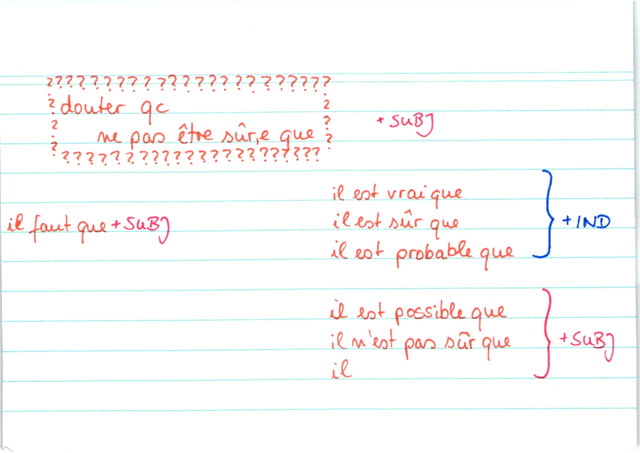 ????????????????????????
? douter qc ?
? ne pas être sûr,e que ?
????????????????????????
+ SUBJ
il est vrai que
il est sûr que
il est probable que
+ IND
il faut que + SUBJ
il est possible que
il n'est pas sûr que
il
+ SUBJ